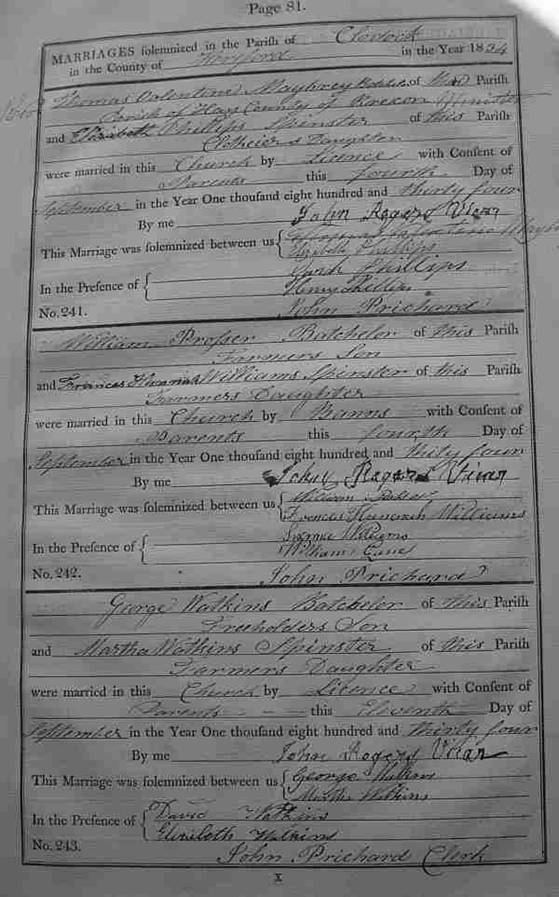 Page 81.
MARRIAGES solemnized in the Parish of Clodock
in the County of Hereford in the Year 1834
Thomas Valentine Maybrey of this Parish
Parish of Hay County of Brecon Minister
and Elizabeth Phillips Spinster of this Parish
Clothiers Daughter
were married in this Church by Licence with Consent of
Parents this fourth Day of
September in the Year One thousand eight hundred and thirty four
By me John Rogers Vicar
This Marriage was solemnized between us { Thomas Valentine
Elizabeth Phillips
In the Presence of { Phillips
Henry Phillips
No. 241. John Prichard
William Prosser Batchelor of this Parish
Farmers Son
and Frances Hannah Williams Spinster of this Parish
Farmers Daughter
were married in this Church by Banns with Consent of
Parents this fourth Day of
September in the Year One thousand eight hundred and thirty four
By me John Rogers Vicar
This Marriage was solemnized between us { William
Frances Hannah Williams
In the Presence of { Williams
William
No. 242. John Prichard
George Watkins Batchelor of this Parish
Freeholders Son
and Martha Watkins Spinster of this Parish
Farmers Daughter
were married in this Church by Licence with Consent of
Parents this Eleventh Day of
September in the Year One thousand eight hundred and thirty four
By me John Rogers Vicar
This Marriage was solemnized between us { George Watkins
Martha Watkins
In the Presence of { David Watkins
Elizabeth Watkins
No. 243. John Prichard Clerk
X